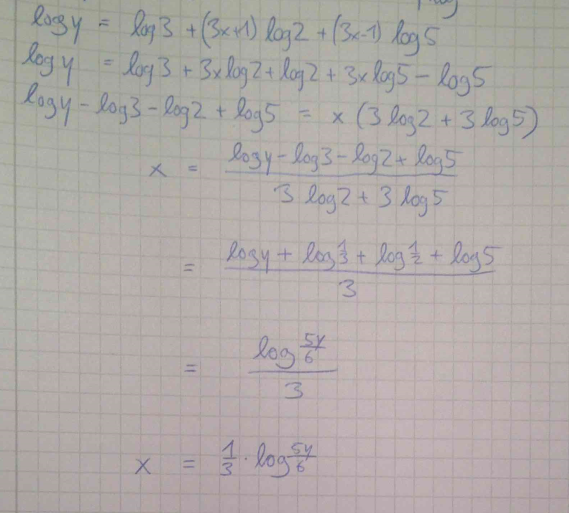 log y = log 3 + (3x+1) log 2 + (3x-1) log 5
log y = log 3 + 3x log 2 + log 2 + 3x log 5 - log 5
log y - log 3 - log 2 + log 5 = x (3 log 2 + 3 log 5)
x = (log y - log 3 - log 2 + log 5) / (3 log 2 + 3 log 5)
= (log y + log 1/3 + log 1/2 + log 5) / 3
= (log 5y/6) / 3
x = 1/3 · log 5y/6